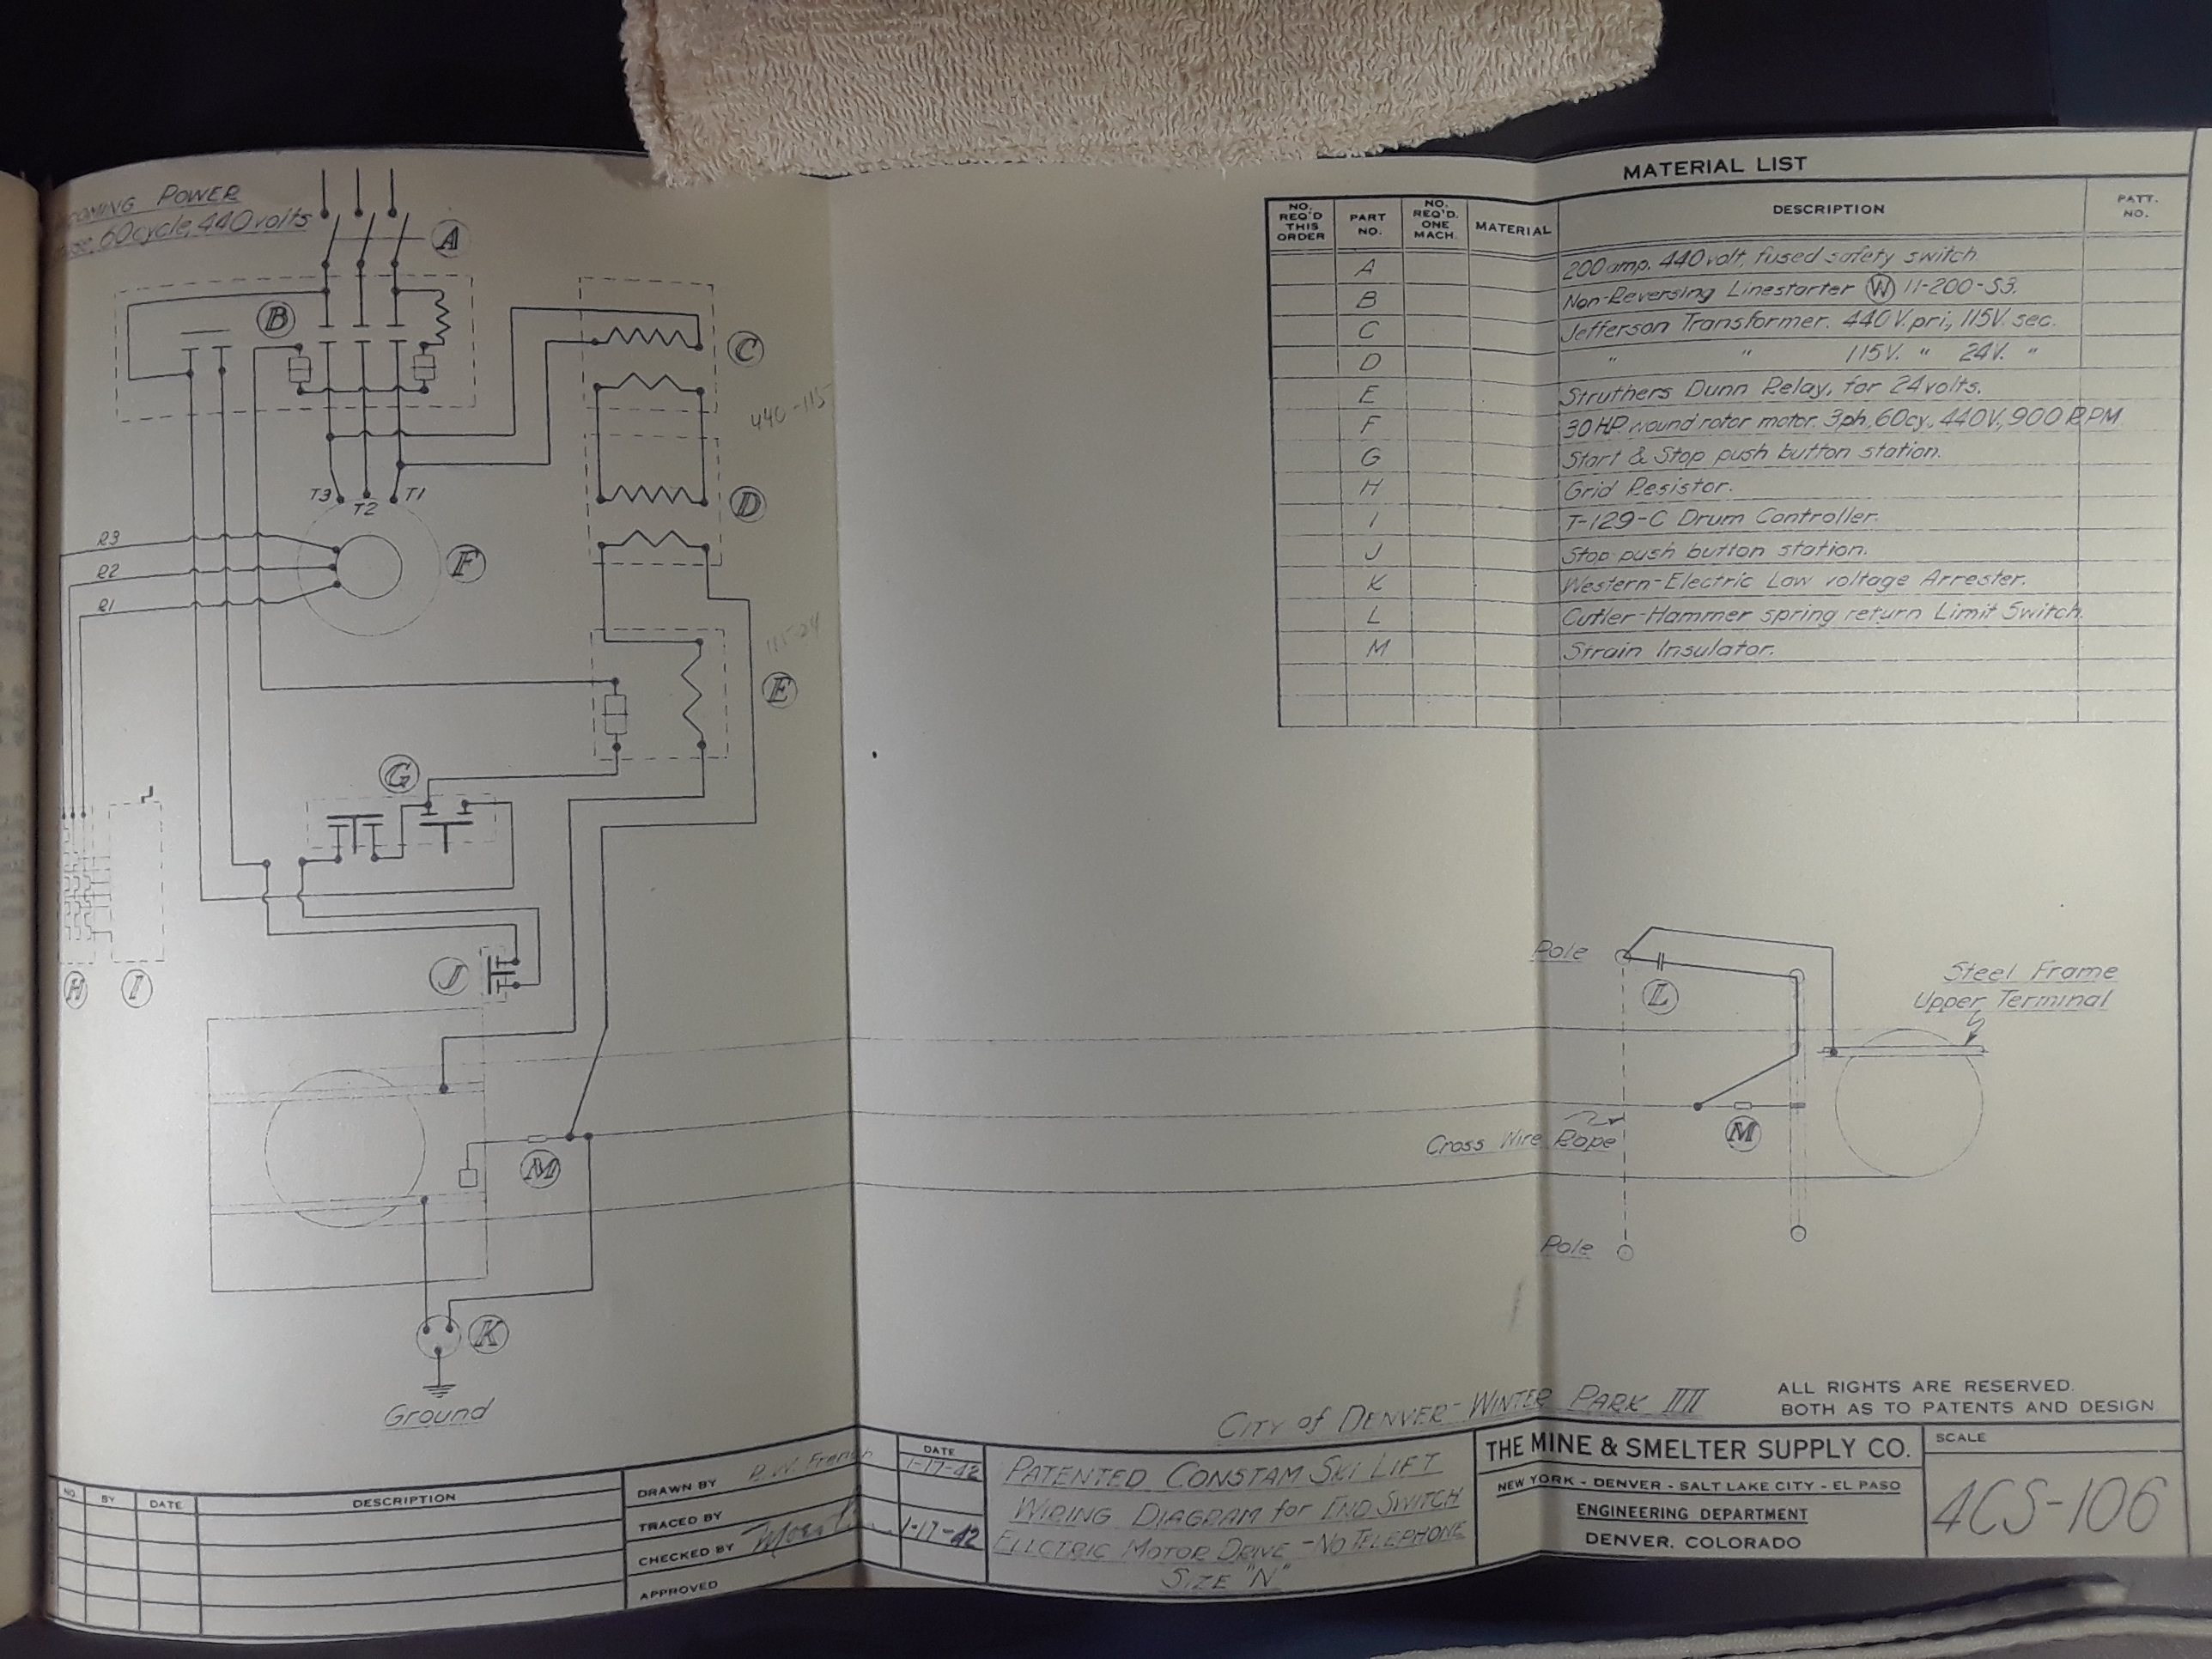 POWER
60cycle, 440 volts
A
B
C
440-115
T3 T2 T1
D
R3
R2
R1
F
115-24
E
G
H
I
J
M
K
Ground
MATERIAL LIST
NO. REQ'D THIS ORDER
PART NO.
NO. REQ'D. ONE MACH.
MATERIAL
DESCRIPTION
PATT. NO.
A 200 amp. 440 volt, fused safety switch
B Non-Reversing Linestarter W 11-200-S3.
C Jefferson Transformer. 440 V. pri., 115V. sec.
D " " 115V. " 24V. "
E Struthers Dunn Relay, for 24 volts.
F 30 HP. wound rotor motor. 3ph, 60cy., 440V., 900 RPM
G Start & Stop push button station.
H Grid Resistor.
I T-129-C Drum Controller.
J Stop push button station.
K Western-Electric Low voltage Arrester.
L Cutler-Hammer spring return Limit Switch.
M Strain Insulator.
Pole
L
Steel Frame
Upper Terminal
M
Cross Wire Rope
Pole
CITY of DENVER - WINTER PARK
ALL RIGHTS ARE RESERVED.
BOTH AS TO PATENTS AND DESIGN
NO. BY DATE DESCRIPTION
DRAWN BY D. W. French
TRACED BY
CHECKED BY
APPROVED
DATE
1-17-42
1-17-42
PATENTED CONSTAM SKI LIFT
WIRING DIAGRAM for END SWITCH
ELECTRIC MOTOR DRIVE - NO TELEPHONE
SIZE "N"
THE MINE & SMELTER SUPPLY CO.
NEW YORK - DENVER - SALT LAKE CITY - EL PASO
ENGINEERING DEPARTMENT
DENVER, COLORADO
SCALE
4CS-106